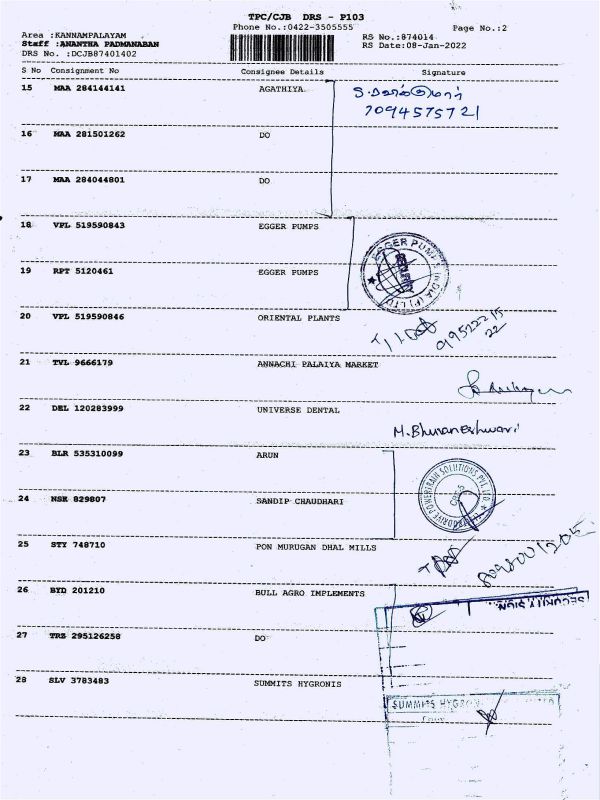 TPC/CJB DRS - P103
Phone No.:0422-3505555 Page No.:2
Area :KANNAMPALAYAM RS No.:874014
Staff :ANANTHA PADMANABAN RS Date:08-Jan-2022
DRS No. :DCJB87401402
S No Consignment No Consignee Details Signature
15 MAA 284144141 AGATHIYA
7094575721
16 MAA 281501262 DO
17 MAA 284044801 DO
18 VPL 519590843 EGGER PUMPS
EGGER PUMPS INDIA (P) LTD
19 RPT 5120461 EGGER PUMPS
20 VPL 519590846 ORIENTAL PLANTS
21 TVL 9666179 ANNACHI PALAIYA MARKET
22 DEL 120283999 UNIVERSE DENTAL
M.Bhuvaneshwari
23 BLR 535310099 ARUN
POWERTRAIN SOLUTIONS PVT. LTD.
24 NSK 829807 SANDIP CHAUDHARI
25 STY 748710 PON MURUGAN DHAL MILLS
26 BYD 201210 BULL AGRO IMPLEMENTS
SECURITY SIGN
27 TRZ 295126258 DO
28 SLV 3783483 SUMMITS HYGRONIS
SUMMITS HYGRON